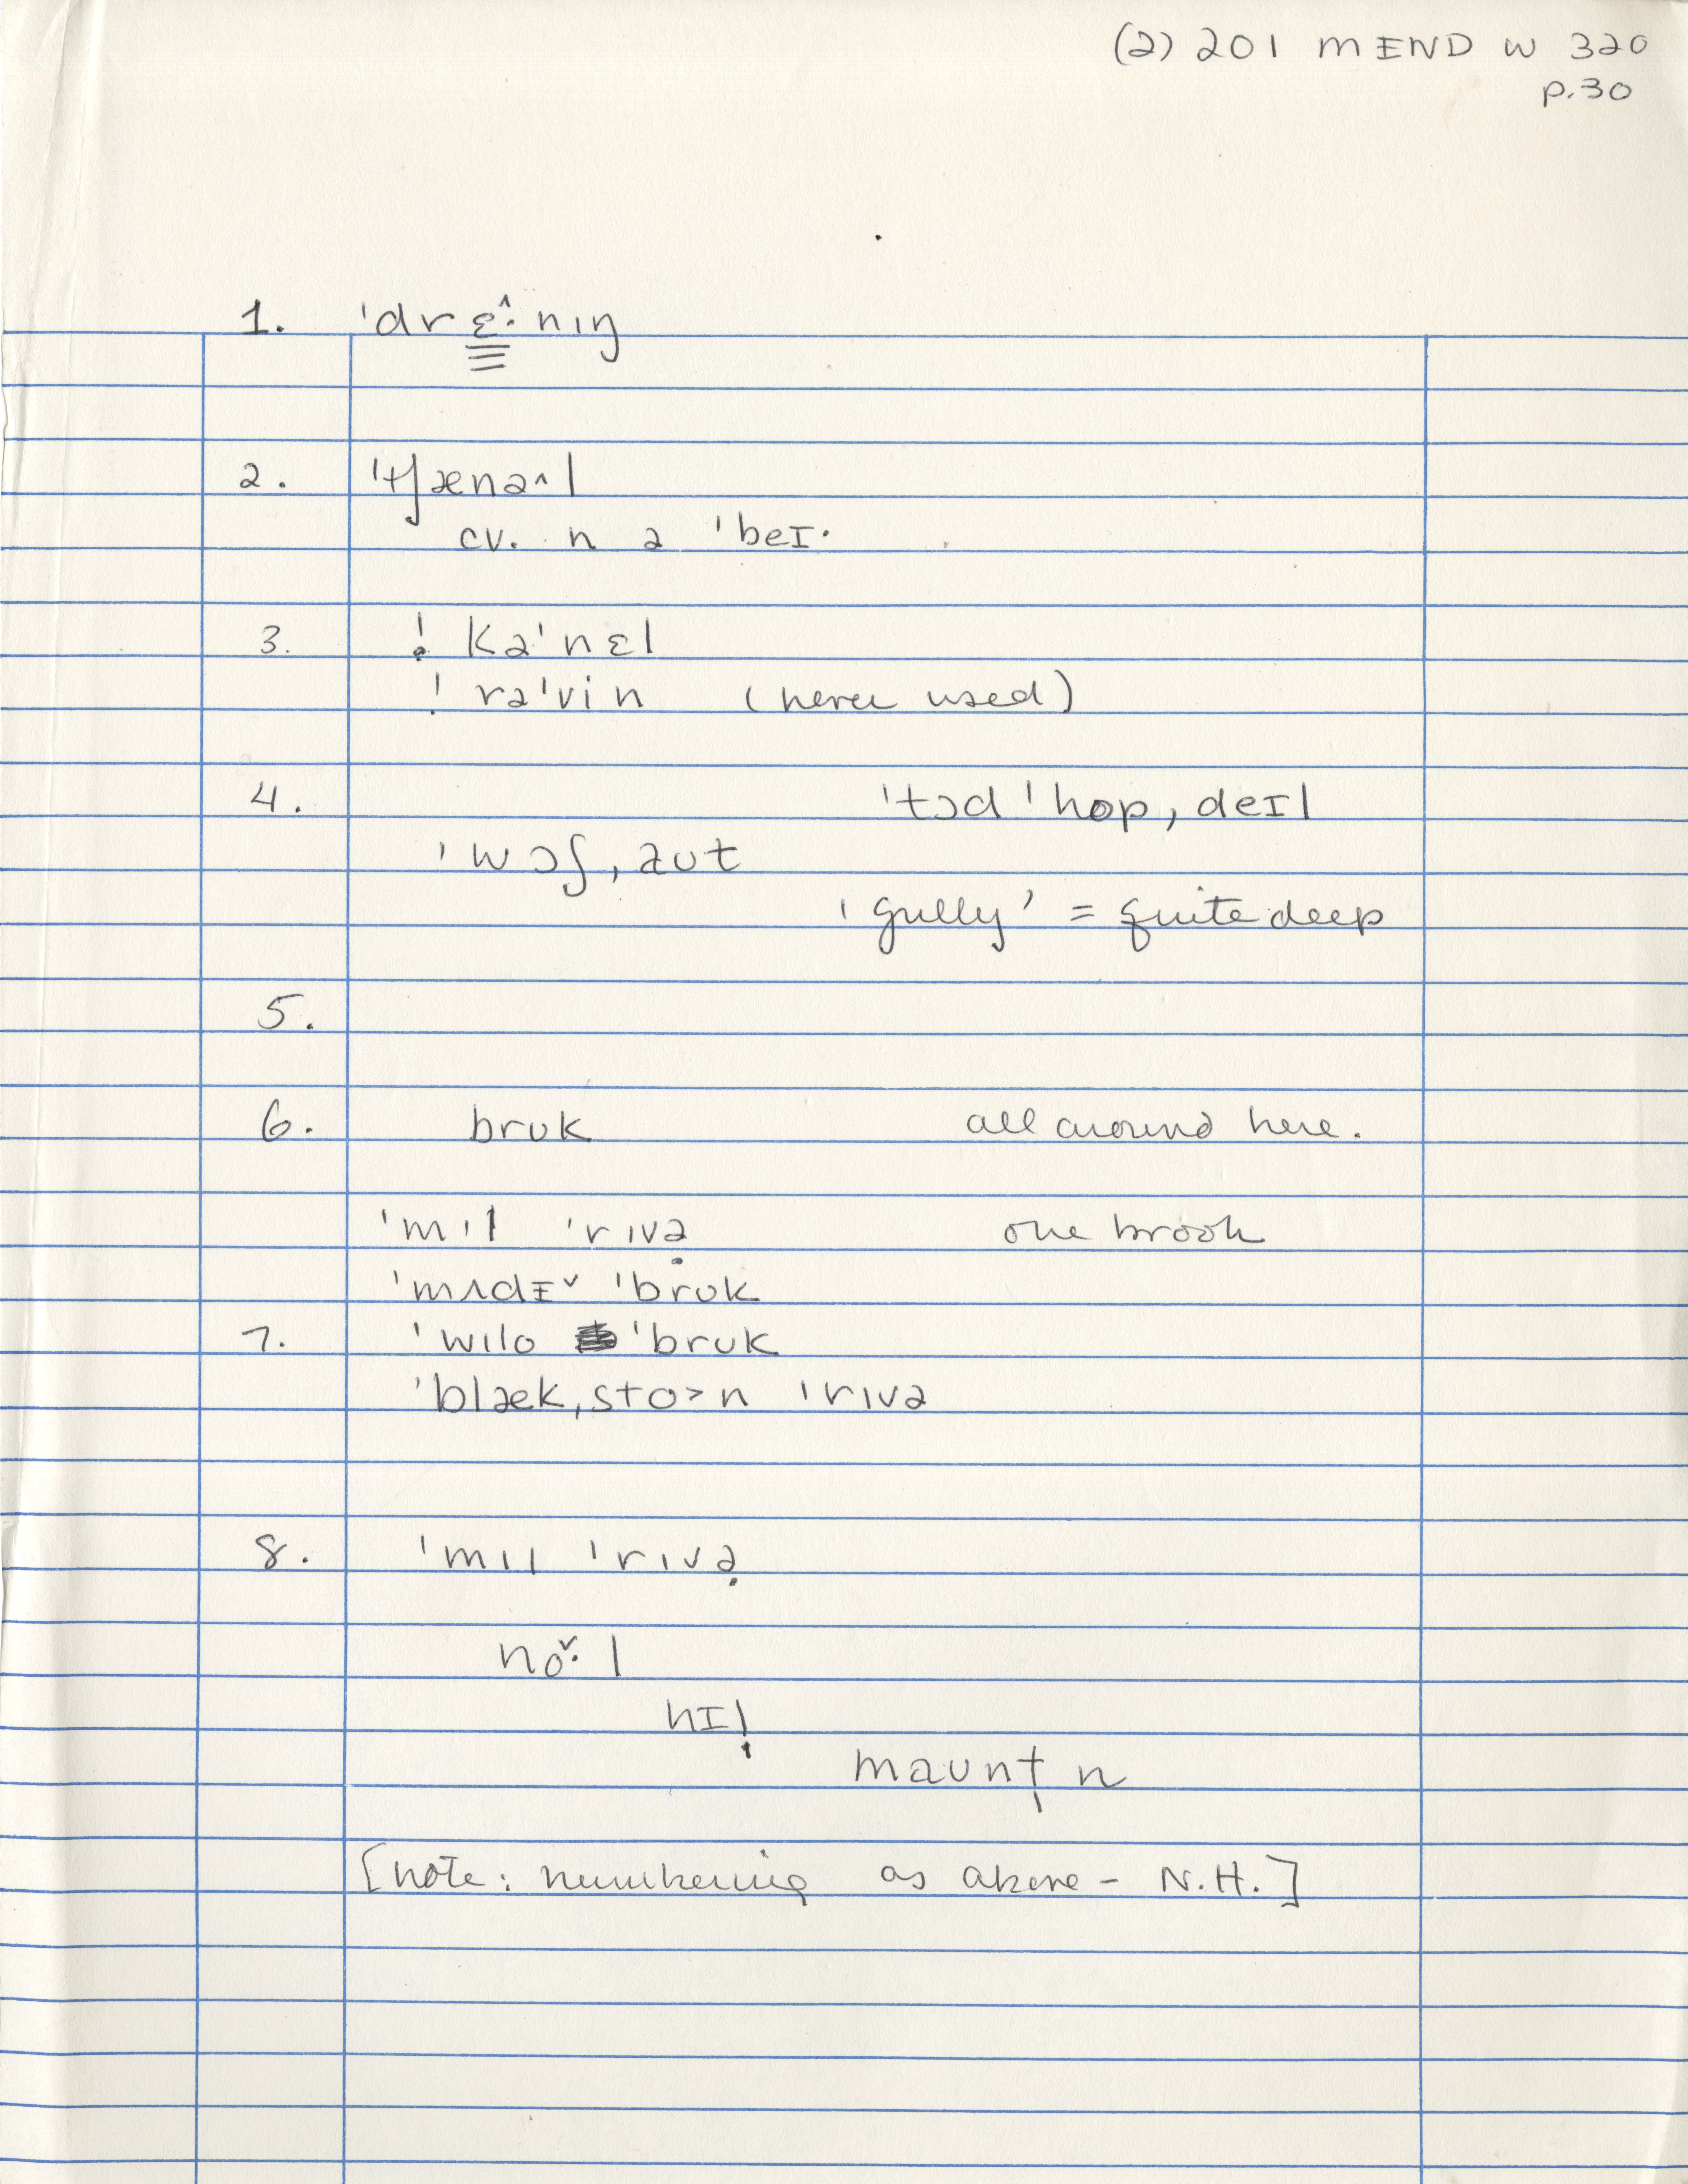 (2) 201 MEND W 320
p.30
1. ˈdrɛ̂·nɪŋ
2. ˈtʃænə^l
cv. n ə ˈbeɪ·
3. ! kəˈnɛl
! rəˈvin (never used)
4. ˈtɔd ˈhop, deɪl
ˈwɔʃ, aʊt
'gully' = quite deep
5.
6. brʊk all around here.
ˈmɪl ˈrɪvə̣ one brook
ˈmʌdɪˇ ˈbrʊk
7. ˈwɪlo ˈbrʊk
ˈblæk,sto>n ˈrɪvə
8. ˈmɪl ˈrɪvə̣
nǒ·l
hɪ!
maʊnt̩n
[note: numbering as above - N.H.]